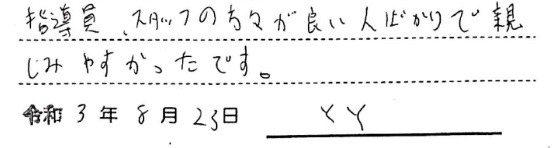 指導員、スタッフの方々が良い人ばかりで親
しみやすかったです。
令和3年8月23日 YY